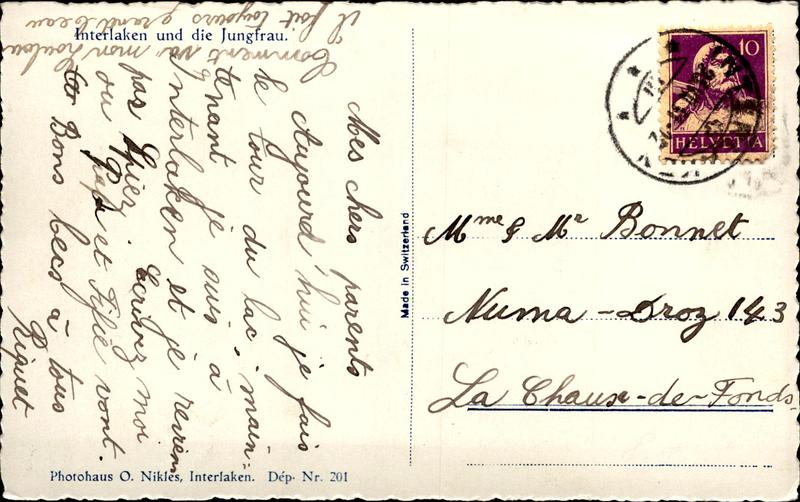 Interlaken und die Jungfrau.
Comment va mon loulou
il fait toujours grand beau
Mes chers parents
Aujourd'hui je fais
le tour du lac, main=
tenant je suis à
Interlaken et je reviens
par Spiez. Écrivez moi
ou Papa et Fifie vont.
Bons becs à tous
Riquet
Photohaus O. Nikles, Interlaken. Dép. Nr. 201
Made in Switzerland
10
HELVETIA
Mme & Mr Bonnet
Numa-Droz 143
La Chaux-de-Fonds.